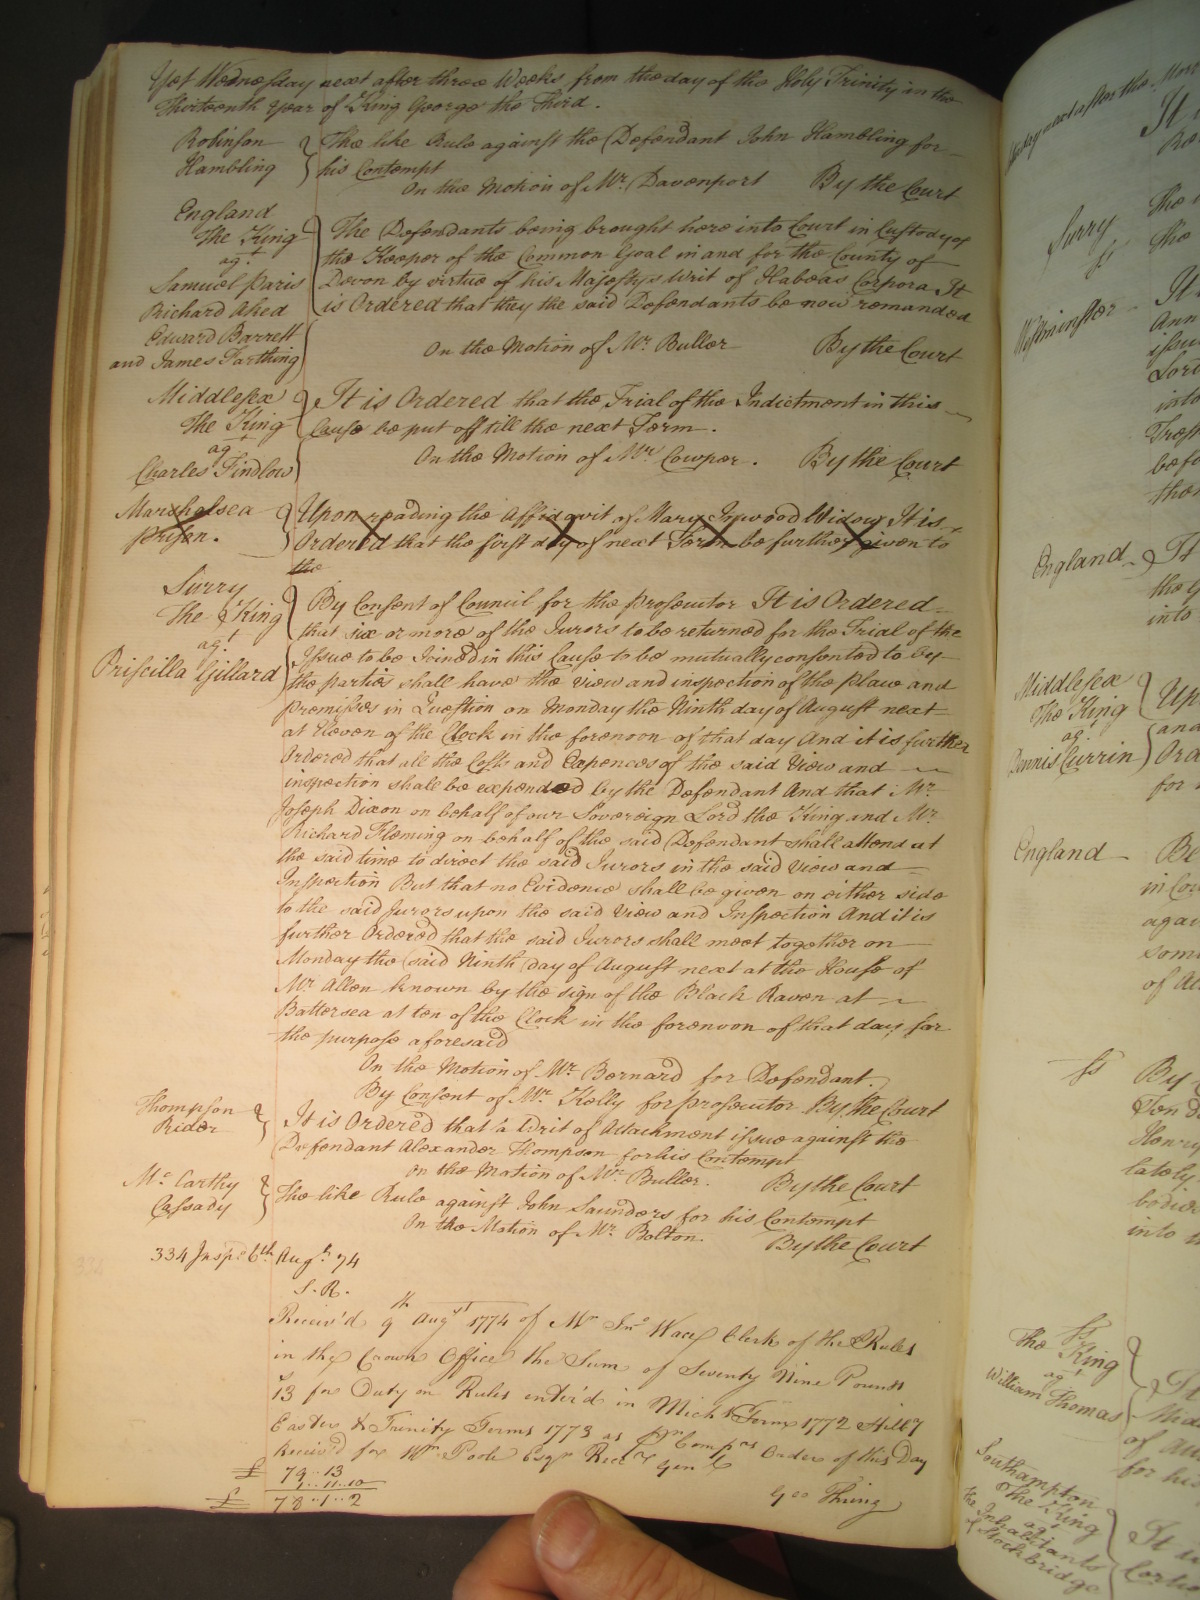 Yet Wednesday next after three Weeks from the day of the Holy Trinity in the
Thirteenth year of King George the Third.
Robinson
Hambling
The like Rule against the Defendant John Hambling for
his Contempt
On the Motion of Mr. Davenport By the Court
England
The King
agt.
Samuel Paris
Richard Aked
Edward Barrett
and James Farthing
The Defendants being brought here into Court in Custody of
the Keeper of the Common Goal in and for the County of
Devon by virtue of his Majestys Writ of Habeas Corpora It
is Ordered that they the said Defendants be now remanded
On the Motion of Mr. Buller By the Court
Middlesex
The King
agt
Charles Findlow
It is Ordered that the Trial of the Indictment in this
Cause be put off till the next Term.
On the Motion of Mr Cowper. By the Court
Marshalsea
Prison.
Upon reading the Affidavit of Mary Inwood Widow It is
Ordered that the first day of next Term be further given to
the
Surry
The King
agt.
Priscilla Gillard
By Consent of Council for the Prosecutor It is Ordered
that six or more of the Jurors to be returned for the Trial of the
Issue to be Joined in this Cause to be mutually consented to by
the parties shall have the view and inspection of the place and
premisses in Question on Monday the Ninth day of August next
at Eleven of the Clock in the forenoon of that day And it is further
Ordered that all the Costs and Expences of the said View and
inspection shall be expended by the Defendant And that Mr.
Joseph Dixon on behalf of our Sovereign Lord the King and Mr.
Richard Fleming on behalf of the said Defendant shall attend at
the said time to direct the said Jurors in the said View and
Inspection But that no Evidence shall be given on either side
to the said Jurors upon the said View and Inspection And it is
further Ordered that the said Jurors shall meet together on
Monday the said Ninth day of August next at the House of
Mr. Allen known by the sign of the Black Raven at
Battersea at ten of the Clock in the forenoon of that day for
the purpose aforesaid
On the Motion of Mr. Bernard for Defendant.
By Consent of Mr. Kelly for prosecutor By the Court
Thompson
Rider
It is Ordered that a Writ of Attachment issue against the
Defendant Alexander Thompson for his Contempt
On the Motion of Mr. Buller. By the Court
Mc. Carthy
Cassady
The like Rule against John Saunders for his Contempt
On the Motion of Mr. Bolton. By the Court
334 Inspd. 6th Augt. 74
S. R.
Receiv'd 9th Augst 1774 of Mr Jno Wace Clerk of the Rules
in the Crown Office the Sum of Seventy Nine Pounds
13 for Duty on Rules enter'd in Mich's Term 1772 Hill'y
Easter & Trinity Terms 1773 as pr Comps Order of this Day
Receiv'd for Wm Poole Esqr Recr Genl
£ 79..13
1..11..10
£ 78..1..2
Geo Thring
Surry
ss
Westminster
England
Middlesex
The King
agt.
Dennis Currin
England
ss
ss
The King
agt
William Thomas
Southampton
The King
agt
the Inhabitants
of Stockbridge